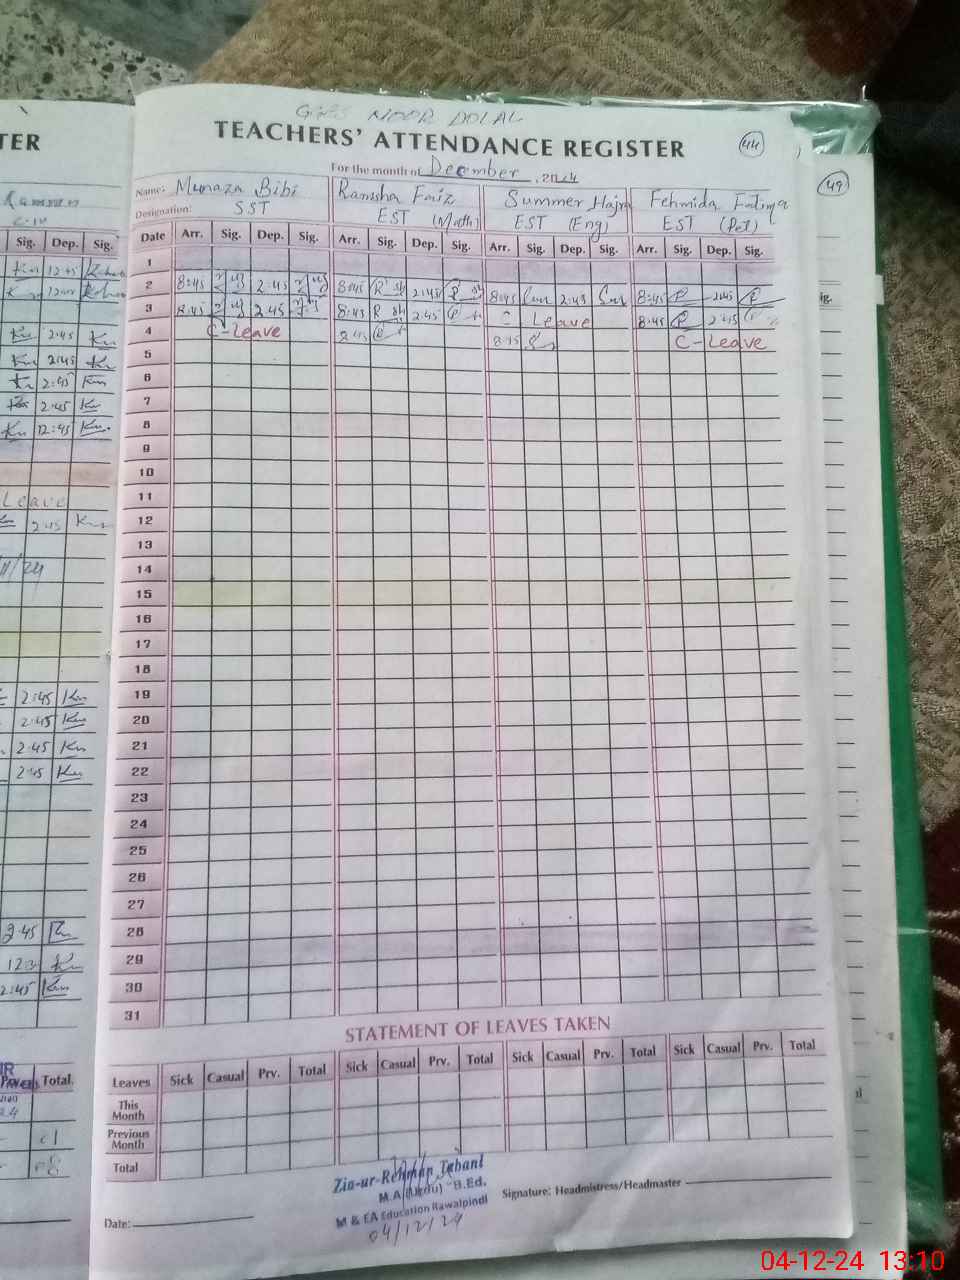 GGES NOOR DOLAL
TEACHERS' ATTENDANCE REGISTER
44
For the month of December, 2024
Name: Munaza Bibi Ramsha Faiz Summer Hajra Fehmida Fatima
Designation: SST EST (Math) EST (Eng) EST (Pet)
Date Arr. Sig. Dep. Sig. Arr. Sig. Dep. Sig. Arr. Sig. Dep. Sig. Arr. Sig. Dep. Sig.
1
2 8:45 2:45 8:45 2:45 8:45 2:45 8:45 2:45
3 8:45 2:45 8:45 2:45 C Leave 8:45 2:45
4 C-Leave 8:45 8:45 C-Leave
5
6
7
8
9
10
11
12
13
14
15
16
17
18
19
20
21
22
23
24
25
26
27
28
29
30
31
STATEMENT OF LEAVES TAKEN
Leaves Sick Casual Prv. Total Sick Casual Prv. Total Sick Casual Prv. Total Sick Casual Prv. Total
This Month
Previous Month
Total
Zia-ur-Rehman Tabani
M.A (Urdu) B.Ed.
M & EA Education Rawalpindi
04/12/24
Signature: Headmistress/Headmaster
Date:
TER
Sig. Dep. Sig.
12:45
2:45
2:45
2:45
2:45
12:45
Leave
2:45
11/24
2:45
2:45
2:45
2:45
2:45
2:45
Total
49
04-12-24 13:10